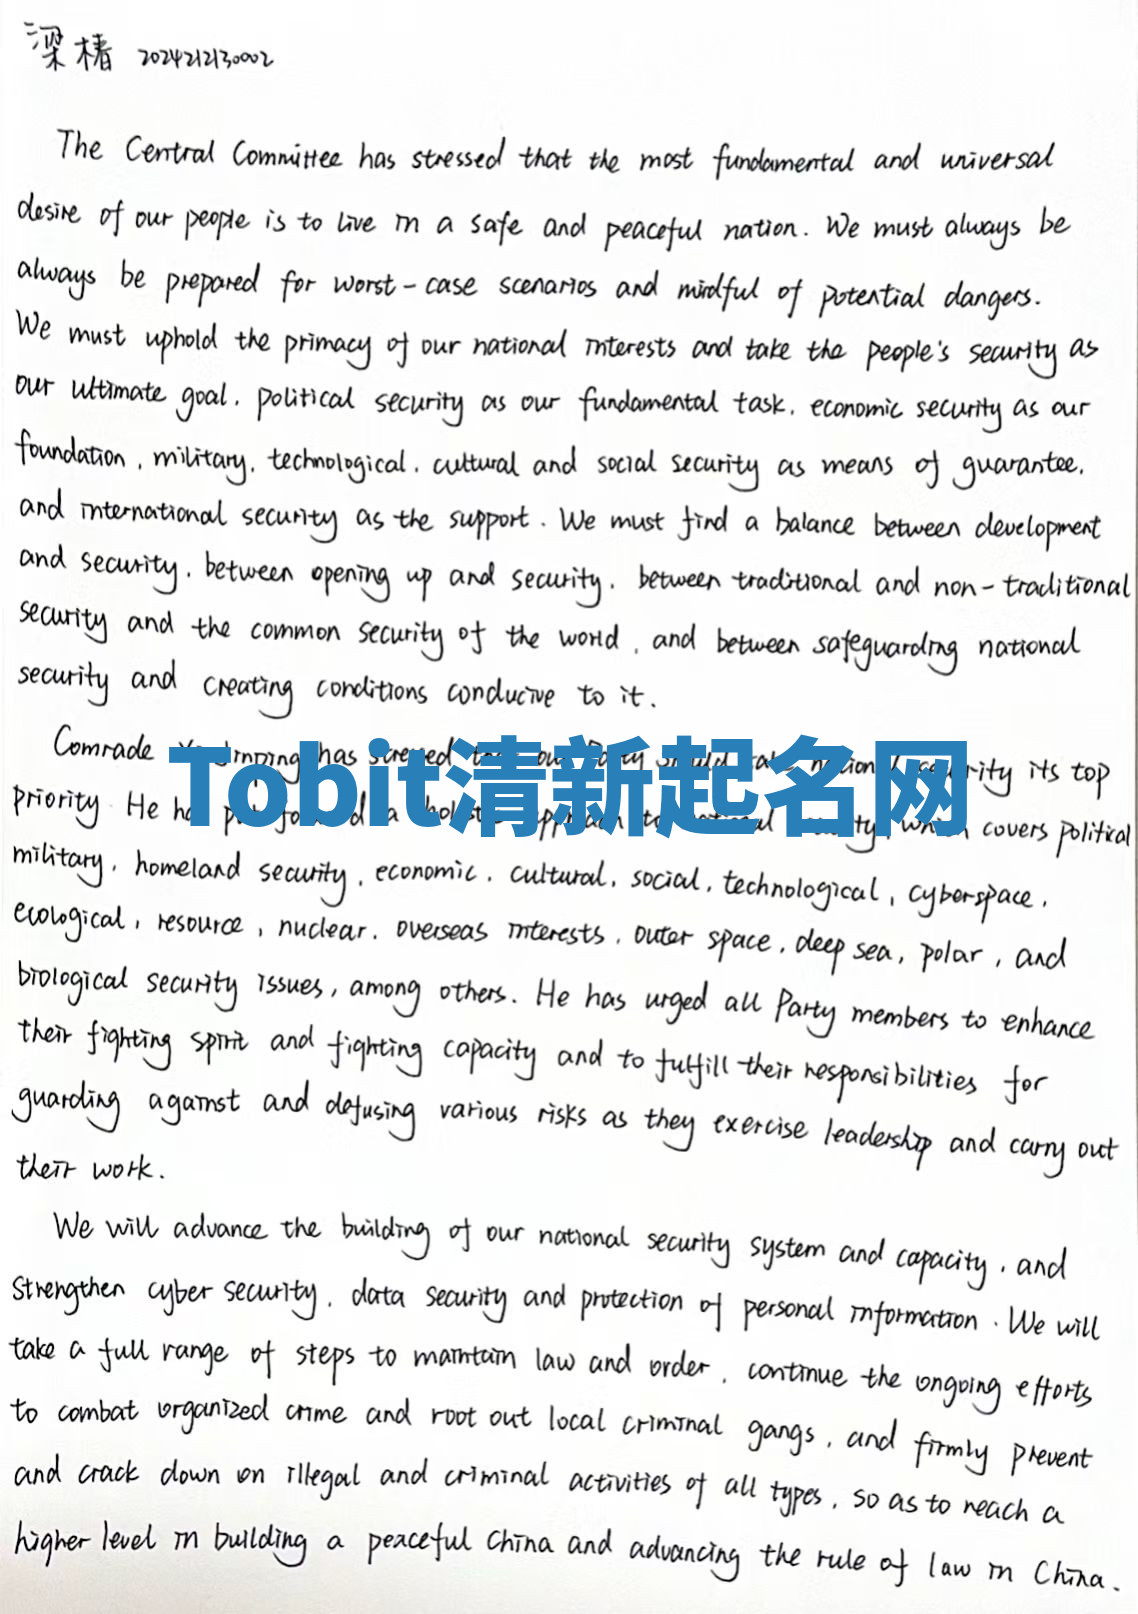 梁椿 2024212130002
The Central Committee has stressed that the most fundamental and universal
desire of our people is to live in a safe and peaceful nation. We must always be
always be prepared for worst-case scenarios and mindful of potential dangers.
We must uphold the primacy of our national interests and take the people's security as
our ultimate goal, political security as our fundamental task, economic security as our
foundation, military, technological, cultural and social security as means of guarantee,
and international security as the support. We must find a balance between development
and security, between opening up and security, between traditional and non-traditional
security and the common security of the world, and between safeguarding national
security and creating conditions conducive to it.
Comrade has its top
priority. He covers political
Tobit清新起名网
military, homeland security, economic, cultural, social, technological, cyberspace,
ecological, resource, nuclear, overseas interests, outer space, deep sea, polar, and
biological security issues, among others. He has urged all Party members to enhance
their fighting spirit and fighting capacity and to fulfill their responsibilities for
guarding against and defusing various risks as they exercise leadership and carry out
their work.
We will advance the building of our national security system and capacity, and
strengthen cyber security, data security and protection of personal information. We will
take a full range of steps to maintain law and order, continue the ongoing efforts
to combat organized crime and root out local criminal gangs, and firmly prevent
and crack down on illegal and criminal activities of all types, so as to reach a
higher level in building a peaceful China and advancing the rule of law in China.